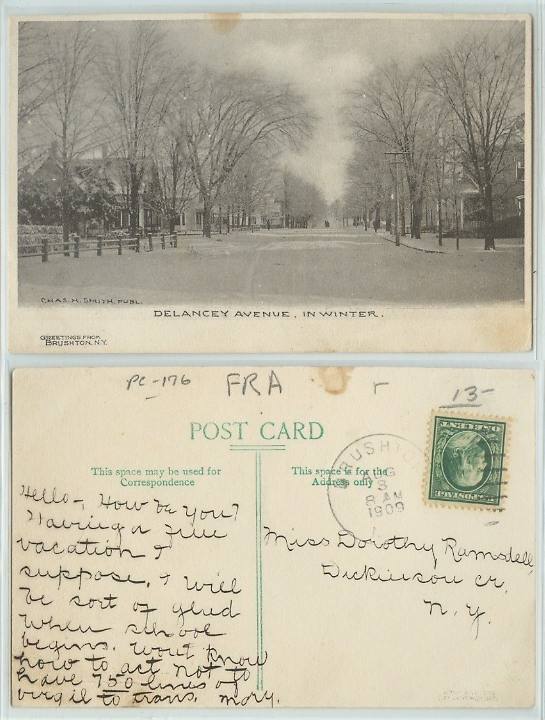 CHAS. H. SMITH, PUBL.
DELANCEY AVENUE, IN WINTER.
GREETINGS FROM
BRUSHTON, N.Y.
PC-176
FRA
13-
POST CARD
This space may be used for
Correspondence
This space is for the
Address only
BRUSHTON
AUG
3
8 AM
1909
ONE CENT
U.S. POSTAGE
Hello - How be you?
Having a fine
vacation I
suppose. I will
be sort of glad
when school
begins. Wont know
how to act not to
have 750 lines of
virgil to trans. Mary.
Miss Dorothy Ramsdell,
Dickinson Cr.
N.Y.